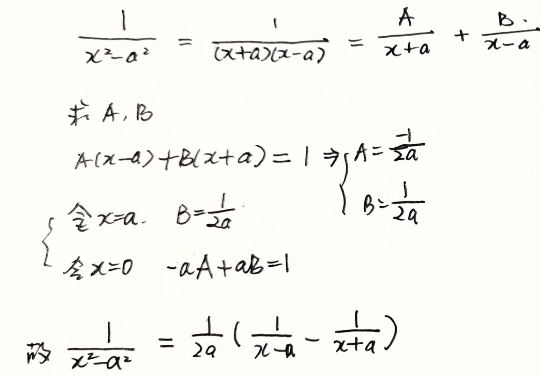 1/(x²-a²) = 1/((x+a)(x-a)) = A/(x+a) + B/(x-a)
求 A, B
A(x-a)+B(x+a)=1 ⇒ { A = -1/2a
B = 1/2a
{ 令 x=a. B=1/2a
令 x=0 -aA+aB=1
故 1/(x²-a²) = 1/2a ( 1/(x-a) - 1/(x+a) )